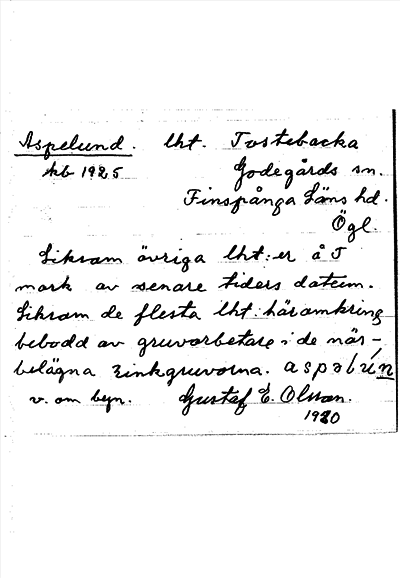 Aspelund. lht. Tostebacka
kb 1925 Godegårds sn.
Finspånga Läns hd.
Ögl.
Liksom övriga lht:er å T
mark av senare tiders datum.
Liksom de flesta lht: häromkring
bebodd av gruvarbetare i de när-
belägna zinkgruvorna.
v. om byn. Gustaf E. Olsson.
1930